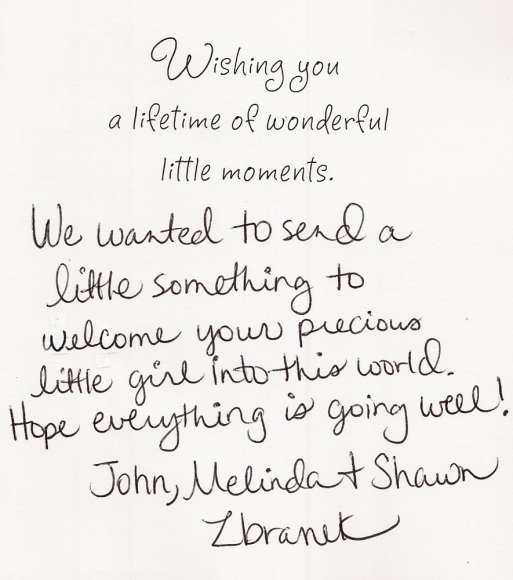 Wishing you
a lifetime of wonderful
little moments.
We wanted to send a
little something to
welcome your precious
little girl into this world.
Hope everything is going well!
John, Melinda + Shawn
Zbranek